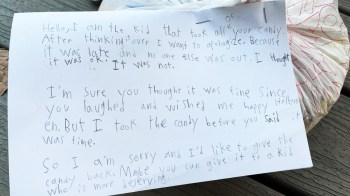 Hello, I am the kid that took all of your candy
After thinking over I want to apologize. Because
it was late and no one else was out. I thought
it was ok. It was not.
I'm sure you thought it was fine since
you laughed and wished me happy Hallowe
en. But I took the candy before you said it
was time.
So I am sorry and I'd like to give the
candy back. Maybe you can give it to a kid
who is more deserving.